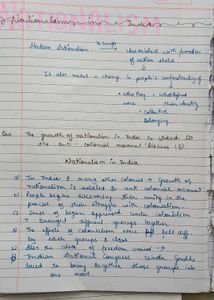 Nationalism in India
Modern Nationalism → associated with formation
of nation states
It also meant a change in people's understanding of
• who they were • what defined their identity
• collective belonging
Ques. The growth of nationalism in India is linked to
the anti-colonial movement. Discuss.
Nationalism in India
In India & many other colonies growth of
nationalism is related to anti colonial movement
People began discovering their unity in the
process of their struggle with colonialism.
Sense of began oppressed under colonialism
→ emerged different groups together.
The effects of colonialism were felt diff
by each groups & class
Also the idea of freedom varied →
Indian National Congress under Gandhi
tried to bring together these groups into
one mov.